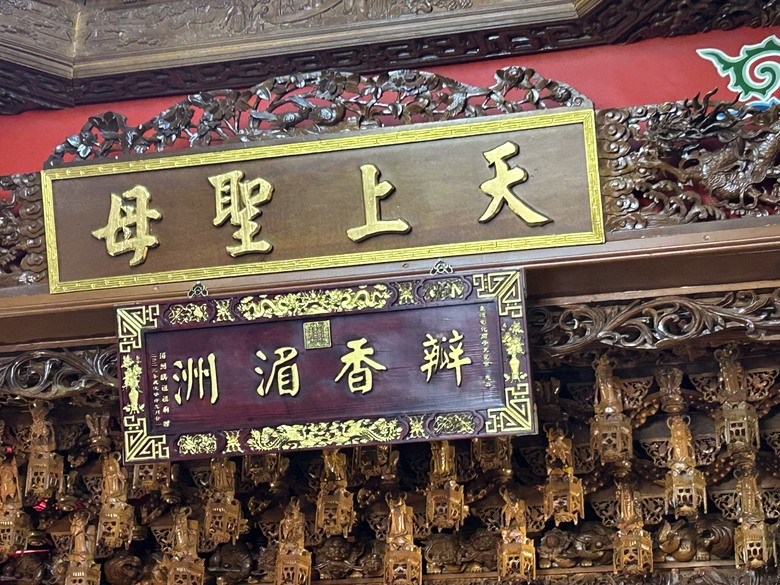 天上聖母
瓣香湄洲